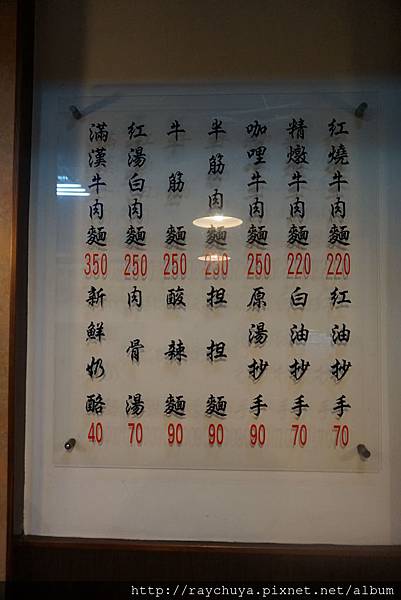 紅燒牛肉麵 220
精燉牛肉麵 220
咖哩牛肉麵 250
半筋肉麵 230
牛筋麵 250
紅湯白肉麵 250
滿漢牛肉麵 350
紅油抄手 70
白油抄手 70
原湯抄手 90
担担麵 90
酸辣麵 90
肉骨湯 70
新鮮奶酪 40
http://raychuya.pixnet.net/album